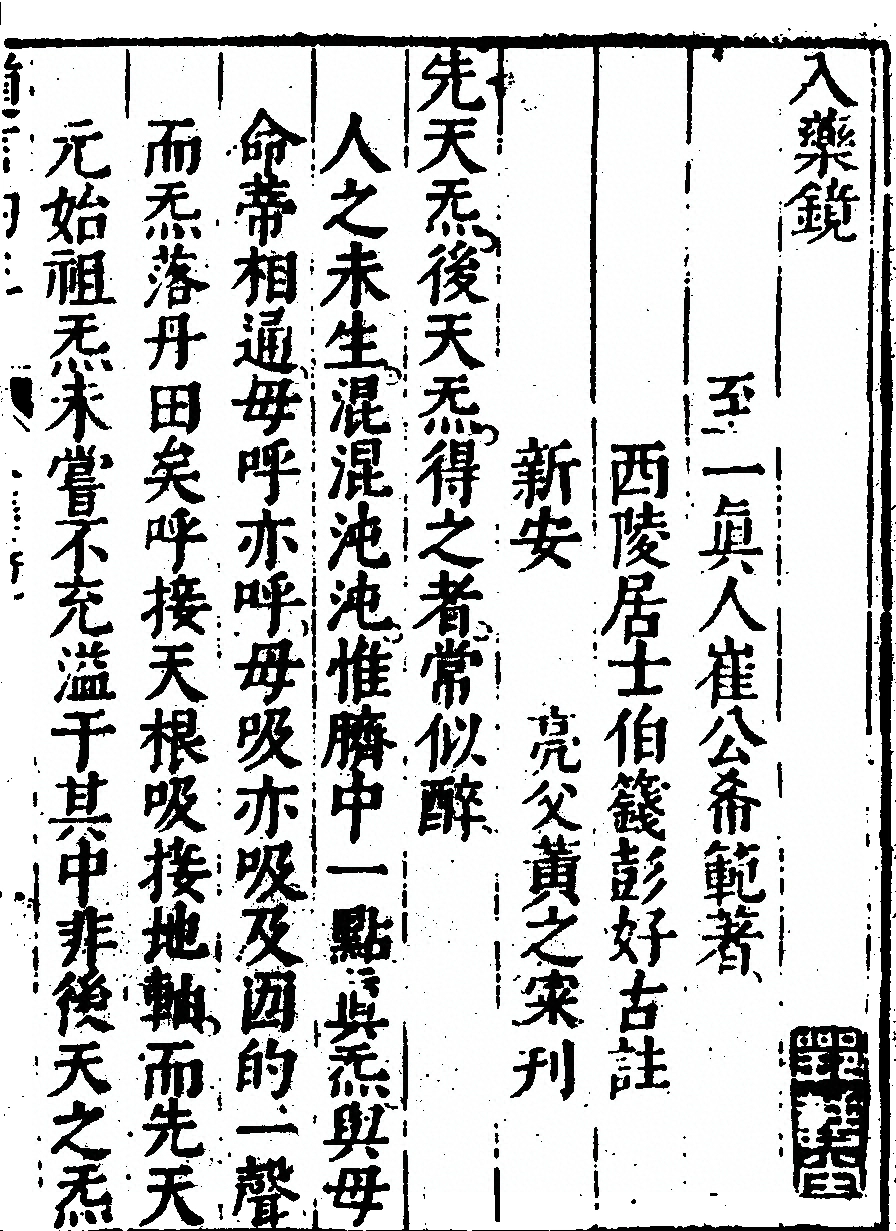 入藥鏡
至一眞人崔公希範著
西陵居士伯籛彭好古註
新安 亮父黃之寀刊
先天炁後天炁得之者常似醉
人之未生混混沌沌惟臍中一點眞炁與母
命蒂相通母呼亦呼母吸亦吸及囡的一聲
而炁落丹田矣呼接天根吸接地軸而先天
元始祖炁未嘗不充溢于其中非後天之炁